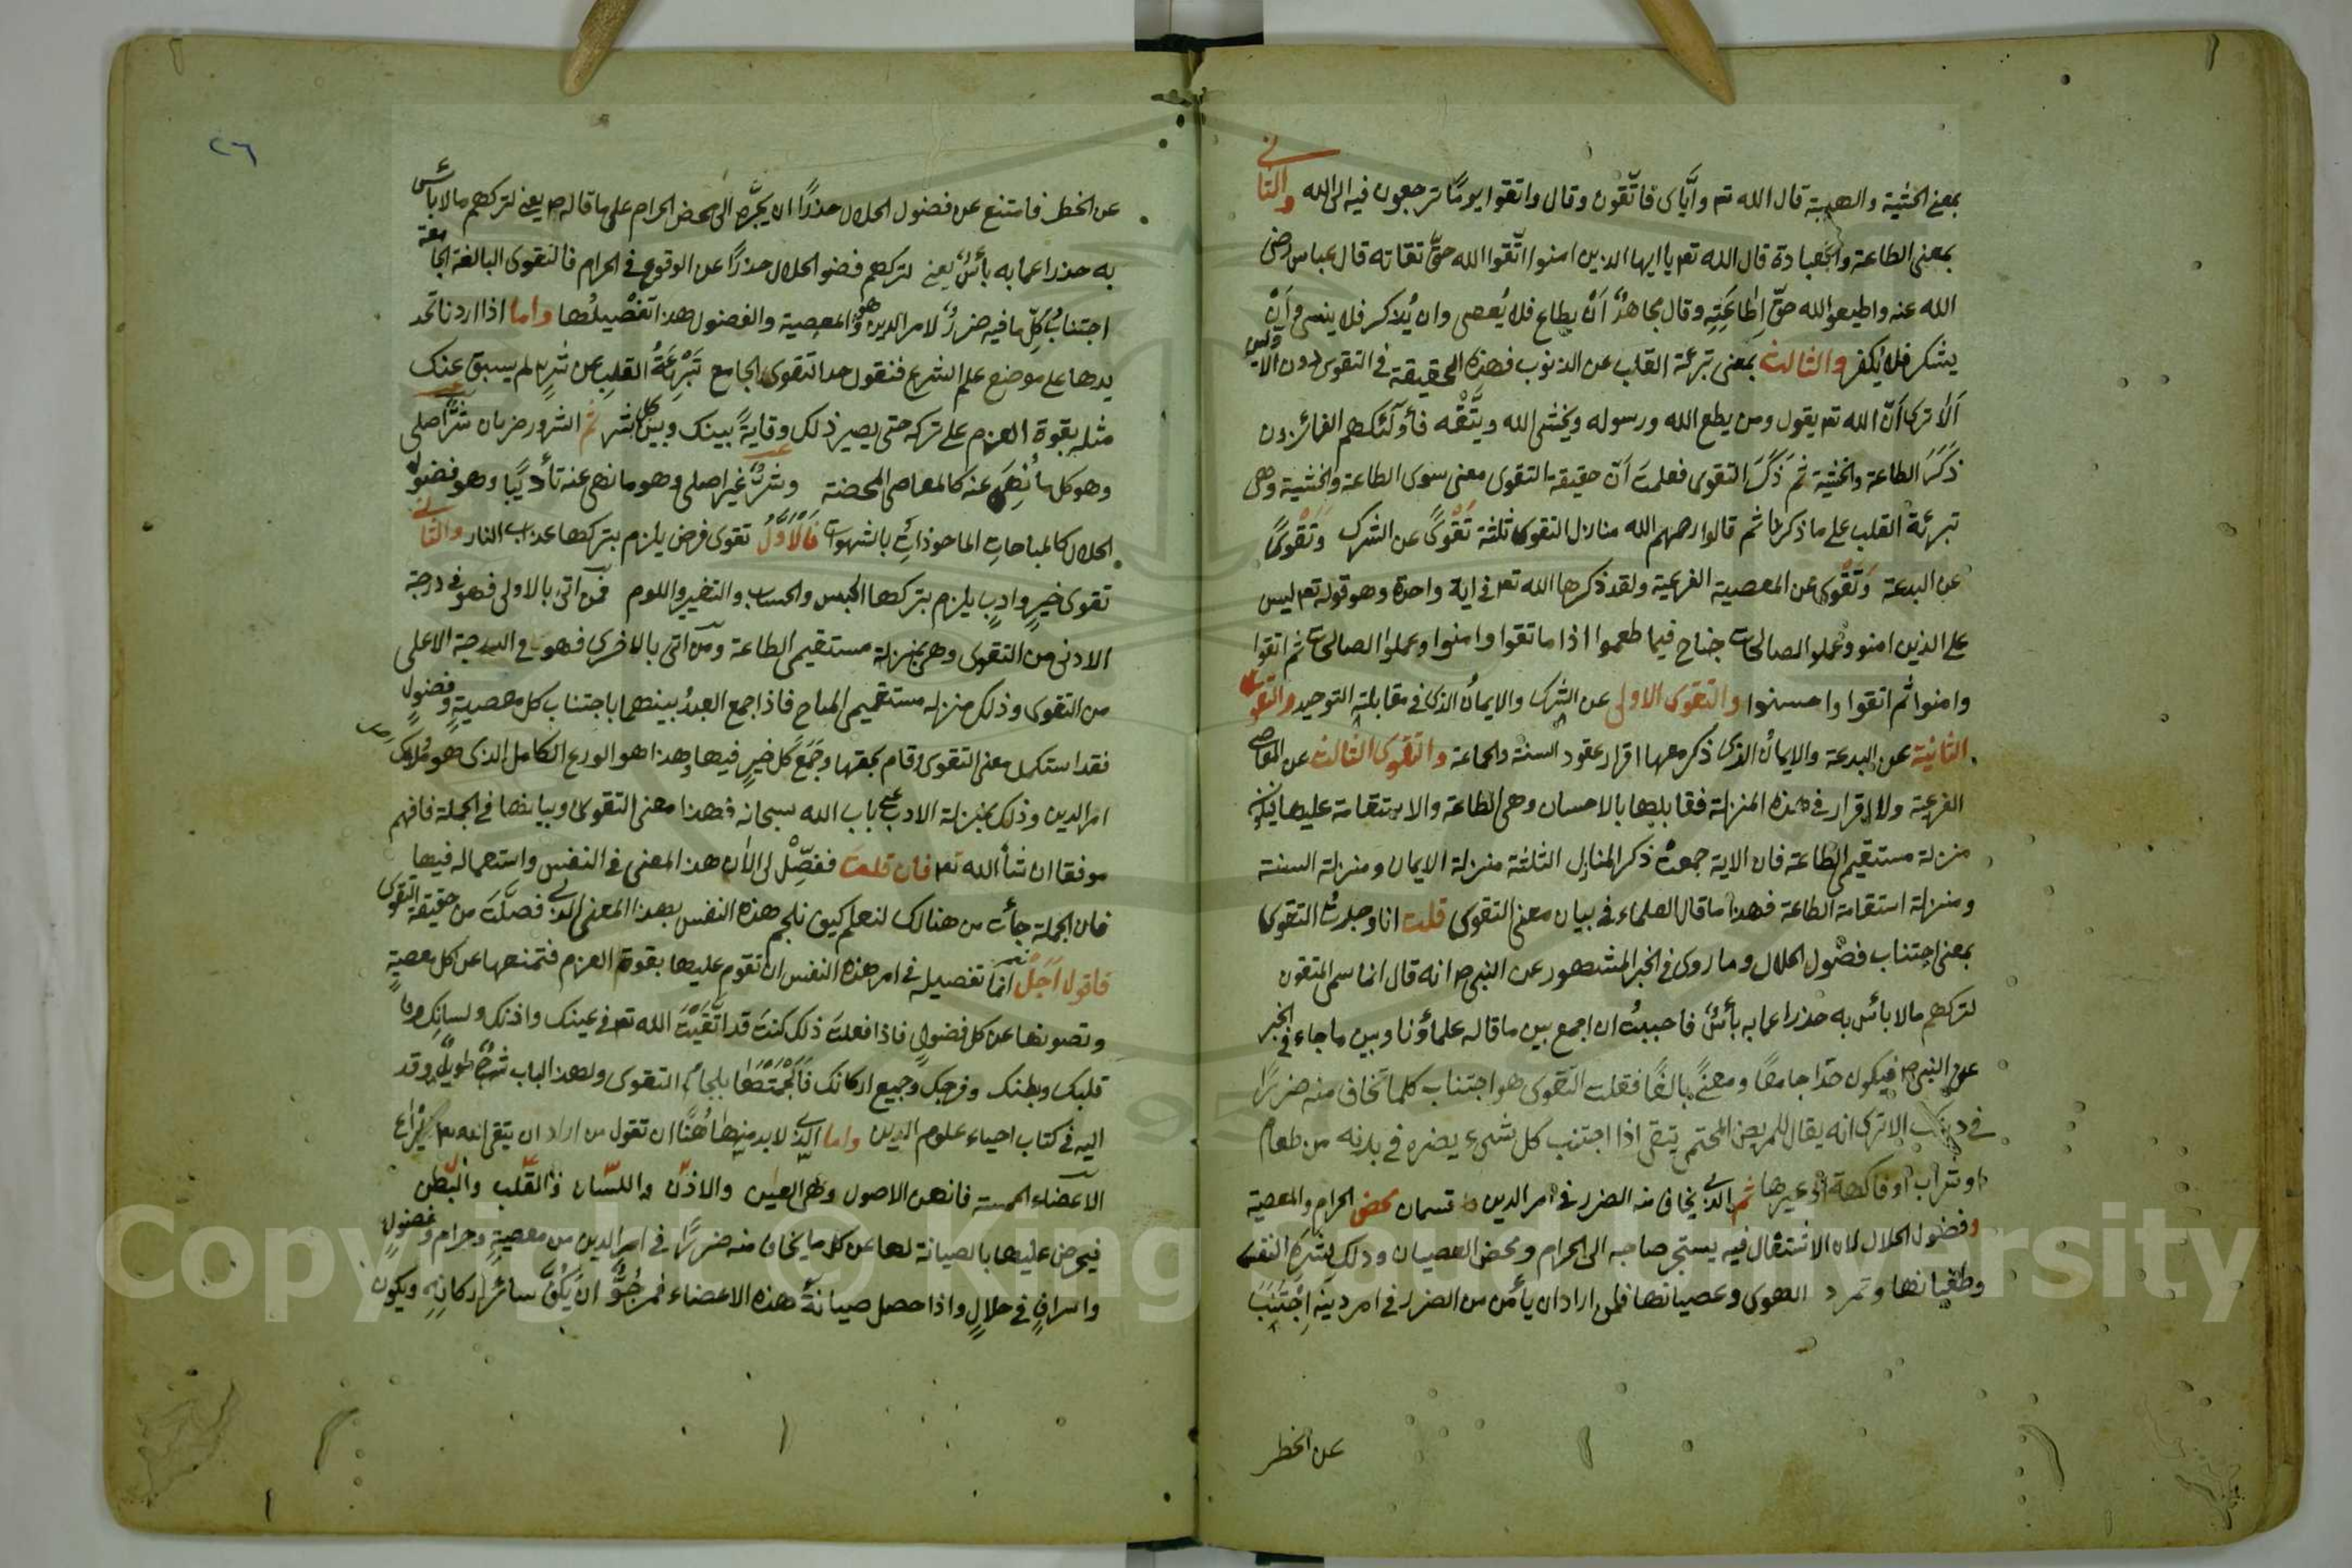 بمعنى الخشية والهيبة قال الله تع وايّاى فاتّقون وقال واتقوا يومًا ترجعون فيه الى الله والثانى
بمعنى الطاعة والعبادة قال الله تع يا ايها الذين امنوا اتّقوا الله حقّ تقاته قال عباس رضى
الله عنه واطيعوا الله حقّ اِطاعَتِهِ وقال مجاهدٌ اَنْ يطاع فلا يُعصى وان يُذكر فلا ينسى واَنْ
يشكر فلا يُكفر والثالث بمعنى تبرئة القلب عن الذنوب فهذه الحقيقة فى التقوى دون الاوليين
اَلا ترى اَنّ الله تع يقول ومن يطع الله ورسوله ويخشى الله ويتّقْه فأولئك هم الفائزون
ذَكَرَ الطاعة والخشية ثم ذَكَرَ التقوى فعلمت اَنّ حقيقة التقوى معنى سوى الطاعة والخشية وهى
تبرئة القلب على ما ذكرنا ثم قالوا رحمهم الله منازل التقوى ثلثة تَقْوىً عن الشرك وَتَقْوىً
عن البدعة وَتَقْوى عن المعصية الفرعية ولقد ذكرها الله تع فى اية واحدة وهو قوله تع ليس
على الذين امنو وعملو الصالحات جناح فيما طعموا اذا ما تقوا وامنوا وعملوا الصالحات ثم اتقوا
وامنوا ثم اتقوا واحسنوا والتقوى الاولى عن الشرك والايمانُ الذى فى مقابلتِهِ التوحيد والتقوى
الثانية عن البدعة والايمانُ الذى ذكر معها اقرار عقود السنة والجماعة والتقوى الثالث عن المعاصى
الفرعية ولا اقرار فى هذه المنزلة فقابلها بالاحسان وهى الطاعة والاستقامة عليها فيكون
منزلة مستقيمى الطاعة فان الاية جمعتْ ذكر المنازل الثلثة منزلة الايمان ومنزلة السنة
ومنزلة استقامة الطاعة فهذا ما قال العلماء فى بيان معنى التقوى قلت انا وجدتُ التقوى
بمعنى اجتناب فضول الحلال وما روى فى الخبر المشهور عن النبى ص انه قال انما سمى المتقون
لتركهم مالا بأس به حذرا عما به بأسٌ فاحببتُ ان اجمع بين ما قاله علماؤنا وبين ما جاء فى الخبر
عن النبى ص فيكون حدّا جامعًا ومعنىً بالغًا فقلت التقوى هو اجتناب كلما تخاف منه ضررًا
فى دينك الا ترى انه يقال للمريض المحتمى يتقى اذا اجتنب كل شىء يضره فى بدنه من طعام
او شراب او فاكهة او غيرها ثم الذى يخاف منه الضرر فى امر الدين قسمان محض الحرام والمعصية
وفضول الحلال لان الاشتغال فيه يستجر صاحبه الى الحرام ومحض العصيان وذلك لشَرَهِ النفس
وطغيانها وتمرد الهوى وعصيانها فمن اراد ان يأمن من الضرر فى امر دينه اِجْتَنَبَ
عن الخطر
٢٦
عن الخطر فامتنع عن فضول الحلال حذرًا ان يجرّه الى محض الحرام على ما قاله ص يعنى لتركهم مالا بأس
به حذرا عما به بأسٌ يعنى لتركهم فضو الحلال حذرًا عن الوقوع فى الحرام فالتقوى البالغة الجامعة
اجتنابُ كلِّ ما فيه ضررٌ لامر الدين وهو المعصية والفضول هذا تَفْصيلُها واما اذا اردنا تحد
يدها على موضع علم الشرع فنقول حدا لتقوى الجامع تَبْرِئَةُ القلبِ عن شرٍ لم يسبق عنك
مثله بقوة العزم على تركه حتى يصير ذلك وقايةً بينك وبين كل شر ثم الشرور ضربان شرٌّ اصلى
وهو كل ما نُهِىَ عنه كالمعاصى المحضة وشرٌّ غير اصلى وهو ما نهى عنه تأديبًا وهو فضول
الحلال كالمباحاتِ الماخوذاتِ بالشهوات فالْأَوَّلُ تقوى فرض يلزم بتركها عذاب النار والثانى
تقوى خيرٍ وادبٍ يلزم بتركها الحبس والحساب والتغير واللوم فمن اتى بالاولى فهو فى درجة
الادنى من التقوى وهى بمنزلة مستقيمى الطاعة ومن اتى بالاخرى فهو فى الدرجة الاعلى
من التقوى وذلك منزلة مستقيمى المباح فاذا جمع العبدُ بينهما باجتناب كل معصيةٍ وفضولٍ
فقد استكمل معنى التقوى وقام بحقها وجَمَعَ كُلّ خيرٍ فيها وهذا هو الورع الكامل الذى هو مُلاك
امر الدين وذلك بمنزلة الادب على باب الله سبحانه فهذا معنى التقوى وبيانها فى الجملة فافهم
موفقا ان شأ الله تع فان قلت ففصِّلْ لى الآن هذا المعنى فى النفس واستعماله فيها
فان الجملة جأت من هنالك لنعلم كيف نلجم هذه النفس بهذا المعنى الذى فصلتَ من حقيقة التقوى
فاقول اَجَلْ انما تفصيله فى امر هذه النفس ان تقوم عليها بقوة العزم فتمنعها عن كل معصيةٍ
وتصونها عن كل فضولٍ فاذا فعلت ذلك كنتَ قد اتّقَيْتَ الله تع فى عينك واذنك ولسانك و
قلبك وبطنك وفرجك وجميع اركانك فَاَلْجَمْتَهَا بلجام التقوى ولهذا الباب شرحٌ طويلٌ وقد
اليه فى كتاب احياء علوم الدين واما الذى لا بد منها هُنَا ان تقول من اراد ان يتقى الله تع فليراع
الاعضاء الخمسة فانهن الاصول وهى العين والاذن واللسان والقلب والبطن
فيحرص عليها بالصيانة لها عن كل ما يخاف منه ضررًا فى امر الدين من معصيةٍ وحرام وفضولٍ
واسرافٍ فى حلالٍ واذا حصل صيانةُ هذه الاعضاء فمرجُوٌّ ان يَكُفَّ سائر اركانِهِ ويكون
Copyright © King Saud University